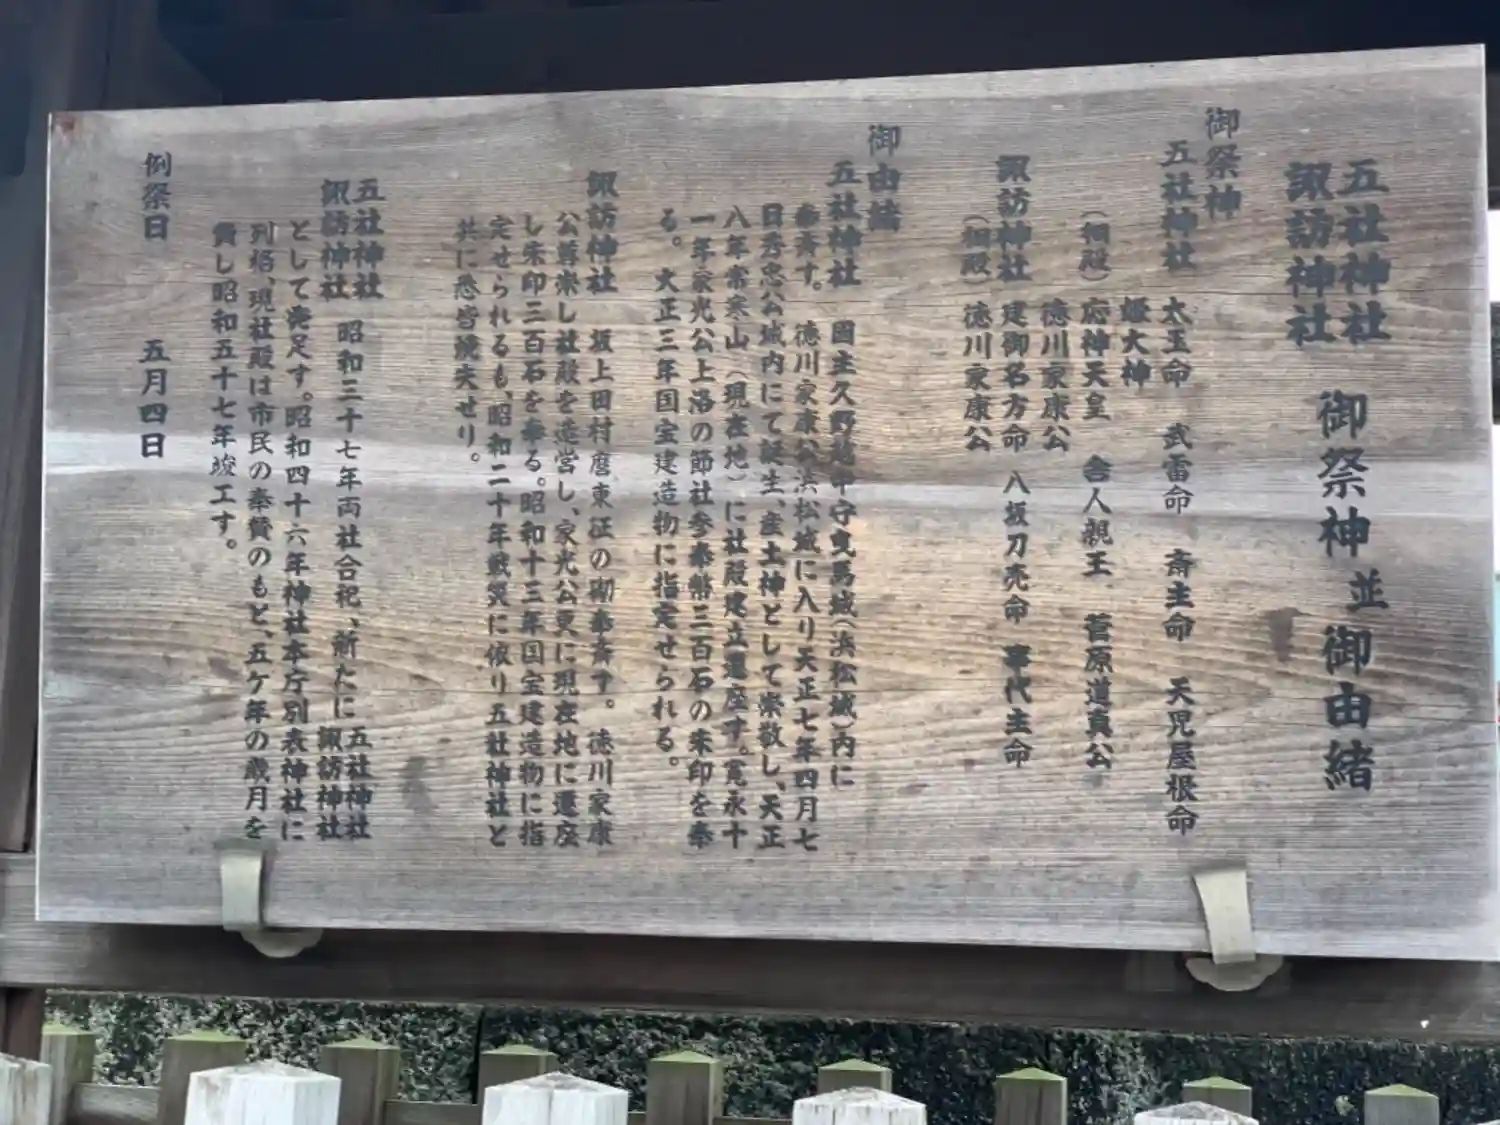 五社神社
諏訪神社
御祭神並御由緒
御祭神
五社神社 太玉命 武雷命 斎主命 天児屋根命
姫大神
(相殿) 応神天皇 舎人親王 菅原道真公
徳川家康公
諏訪神社 建御名方命 八坂刀売命 事代主命
(相殿) 徳川家康公
御由緒
五社神社 国主久野越中守曳馬城(浜松城)内に
奉斎す。 徳川家康公浜松城に入り天正七年四月七
日秀忠公城内にて誕生、産土神として崇敬し、天正
八年常寒山(現在地)に社殿建立遷座す。寛永十
一年家光公上洛の節社参奉幣三百石の朱印を奉
る。 大正三年国宝建造物に指定せられる。
諏訪神社 坂上田村麿東征の砌奉斎す。 徳川家康
公尊崇し社殿を造営し、家光公更に現在地に遷座
し朱印三百石を奉る。昭和十三年国宝建造物に指
定せられるも、昭和二十年戦災に依り五社神社と
共に悉皆焼失せり。
五社神社
諏訪神社
昭和三十七年両社合祀、新たに
五社神社
諏訪神社
として発足す。昭和四十六年神社本庁別表神社に
列格、現社殿は市民の奉賛のもと、五ケ年の歳月を
費し昭和五十七年竣工す。
例祭日 五月四日